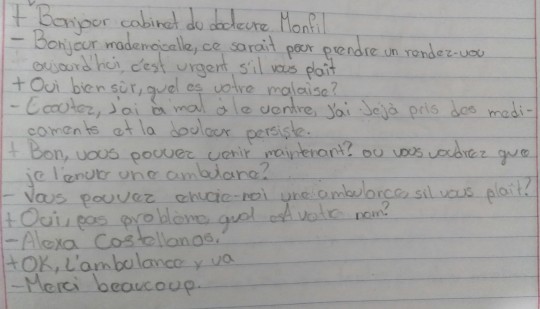 + Bonjour cabinet du docteure Monfil
- Bonjour mademoicalle, ce sarait pour prendre un rendez-vou
aujourd'hui, c'est urgent s'il vous plait
+ Oui bien sûr, quel es votre malaise?
- Ecoutez, j'ai a mal à le ventre, j'ai déjà pris des medi-
caments et la douleur persiste.
+ Bon, vous pouvez venir maintenant? ou vous voudrez que
je l'envoie une ambulance?
- Vous pouvez envoie-moi une ambulance, sil vous plait?
+ Oui, pas problème qual est votre nom?
- Alexa Castellanos.
+ OK, L'ambulance y va
- Merci beaucoup.